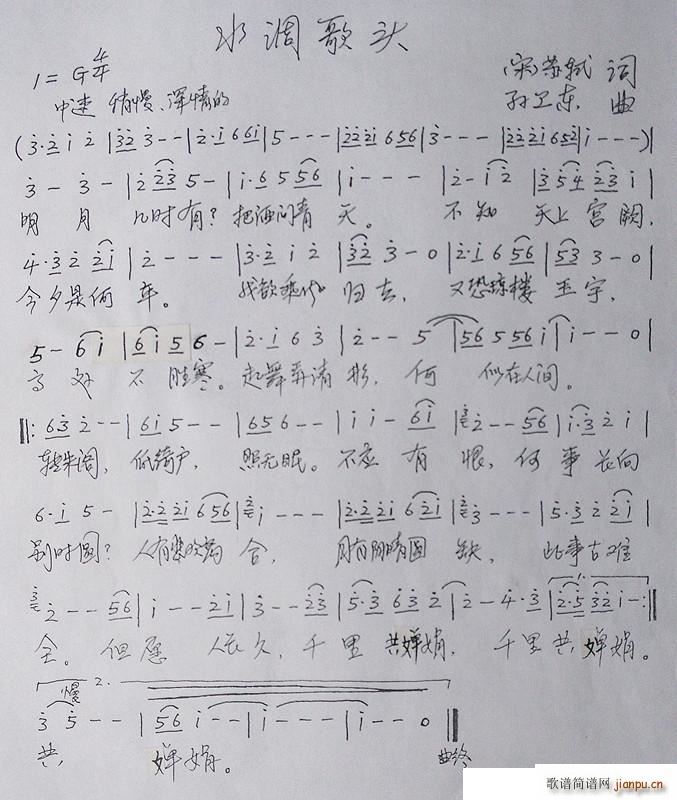 水调歌头
1=G 4/4
(宋)苏轼 词
中速 稍慢、深情的
孙卫东 曲
(3·2 1 2 | 32 3 - - | 2·1 6 61 | 5 - - - | 22 21 6 56 | 3 - - - | 22 21 6 52 | 1 - - -) |
3 - 3 - | 2 23 5 - | 1·6 5 56 | 1 - - - | 2 - 1 2 | 3 5 4 23 1 |
明 月 几时有? 把酒问青 天。 不 知 天上 宫 阙,
4·3 2 21 | 2 - - - | 3·2 1 2 | 32 3 - 0 | 2·1 6 56 | 53 3 - 0 |
今夕是何 年。 我欲乘 归去, 又恐琼楼 玉宇,
5 - 6 1 | 6 1 5 6 - | 2·1 6 3 | 2 - - 5 | 56 5 56 1 | 1 - - 0 |
高 处 不 胜寒。 起舞弄清 影, 何 似在人间。
‖: 63 2 - - | 61 5 - - | 65 6 - - | 1 1 - 61 | 2 - - 56 | 1·3 2 1 |
转朱阁, 低绮户, 照无眠。 不应 有 恨, 何 事 长向
6·1 5 - | 2·2 21 6 56 | 1 - - - | 2·2 21 6 21 | 3 - - - | 5·3 2 21 |
别时圆? 人有悲欢离 合, 月有阴晴圆 缺, 此事古难
2 - - 56 | 1 - - 21 | 3 - - 23 | 5·3 63 2 | 2 - 4·3 | 2·5 32 1 - :‖
全。 但 愿 人长 久, 千 里 共婵娟, 千 里 共 婵娟。
慢 2.
3 5 - - | 56 1 - - | 1 - - - | 1 - - 0 ‖
共 婵娟。 曲终
歌谱简谱网
jianpu.cn